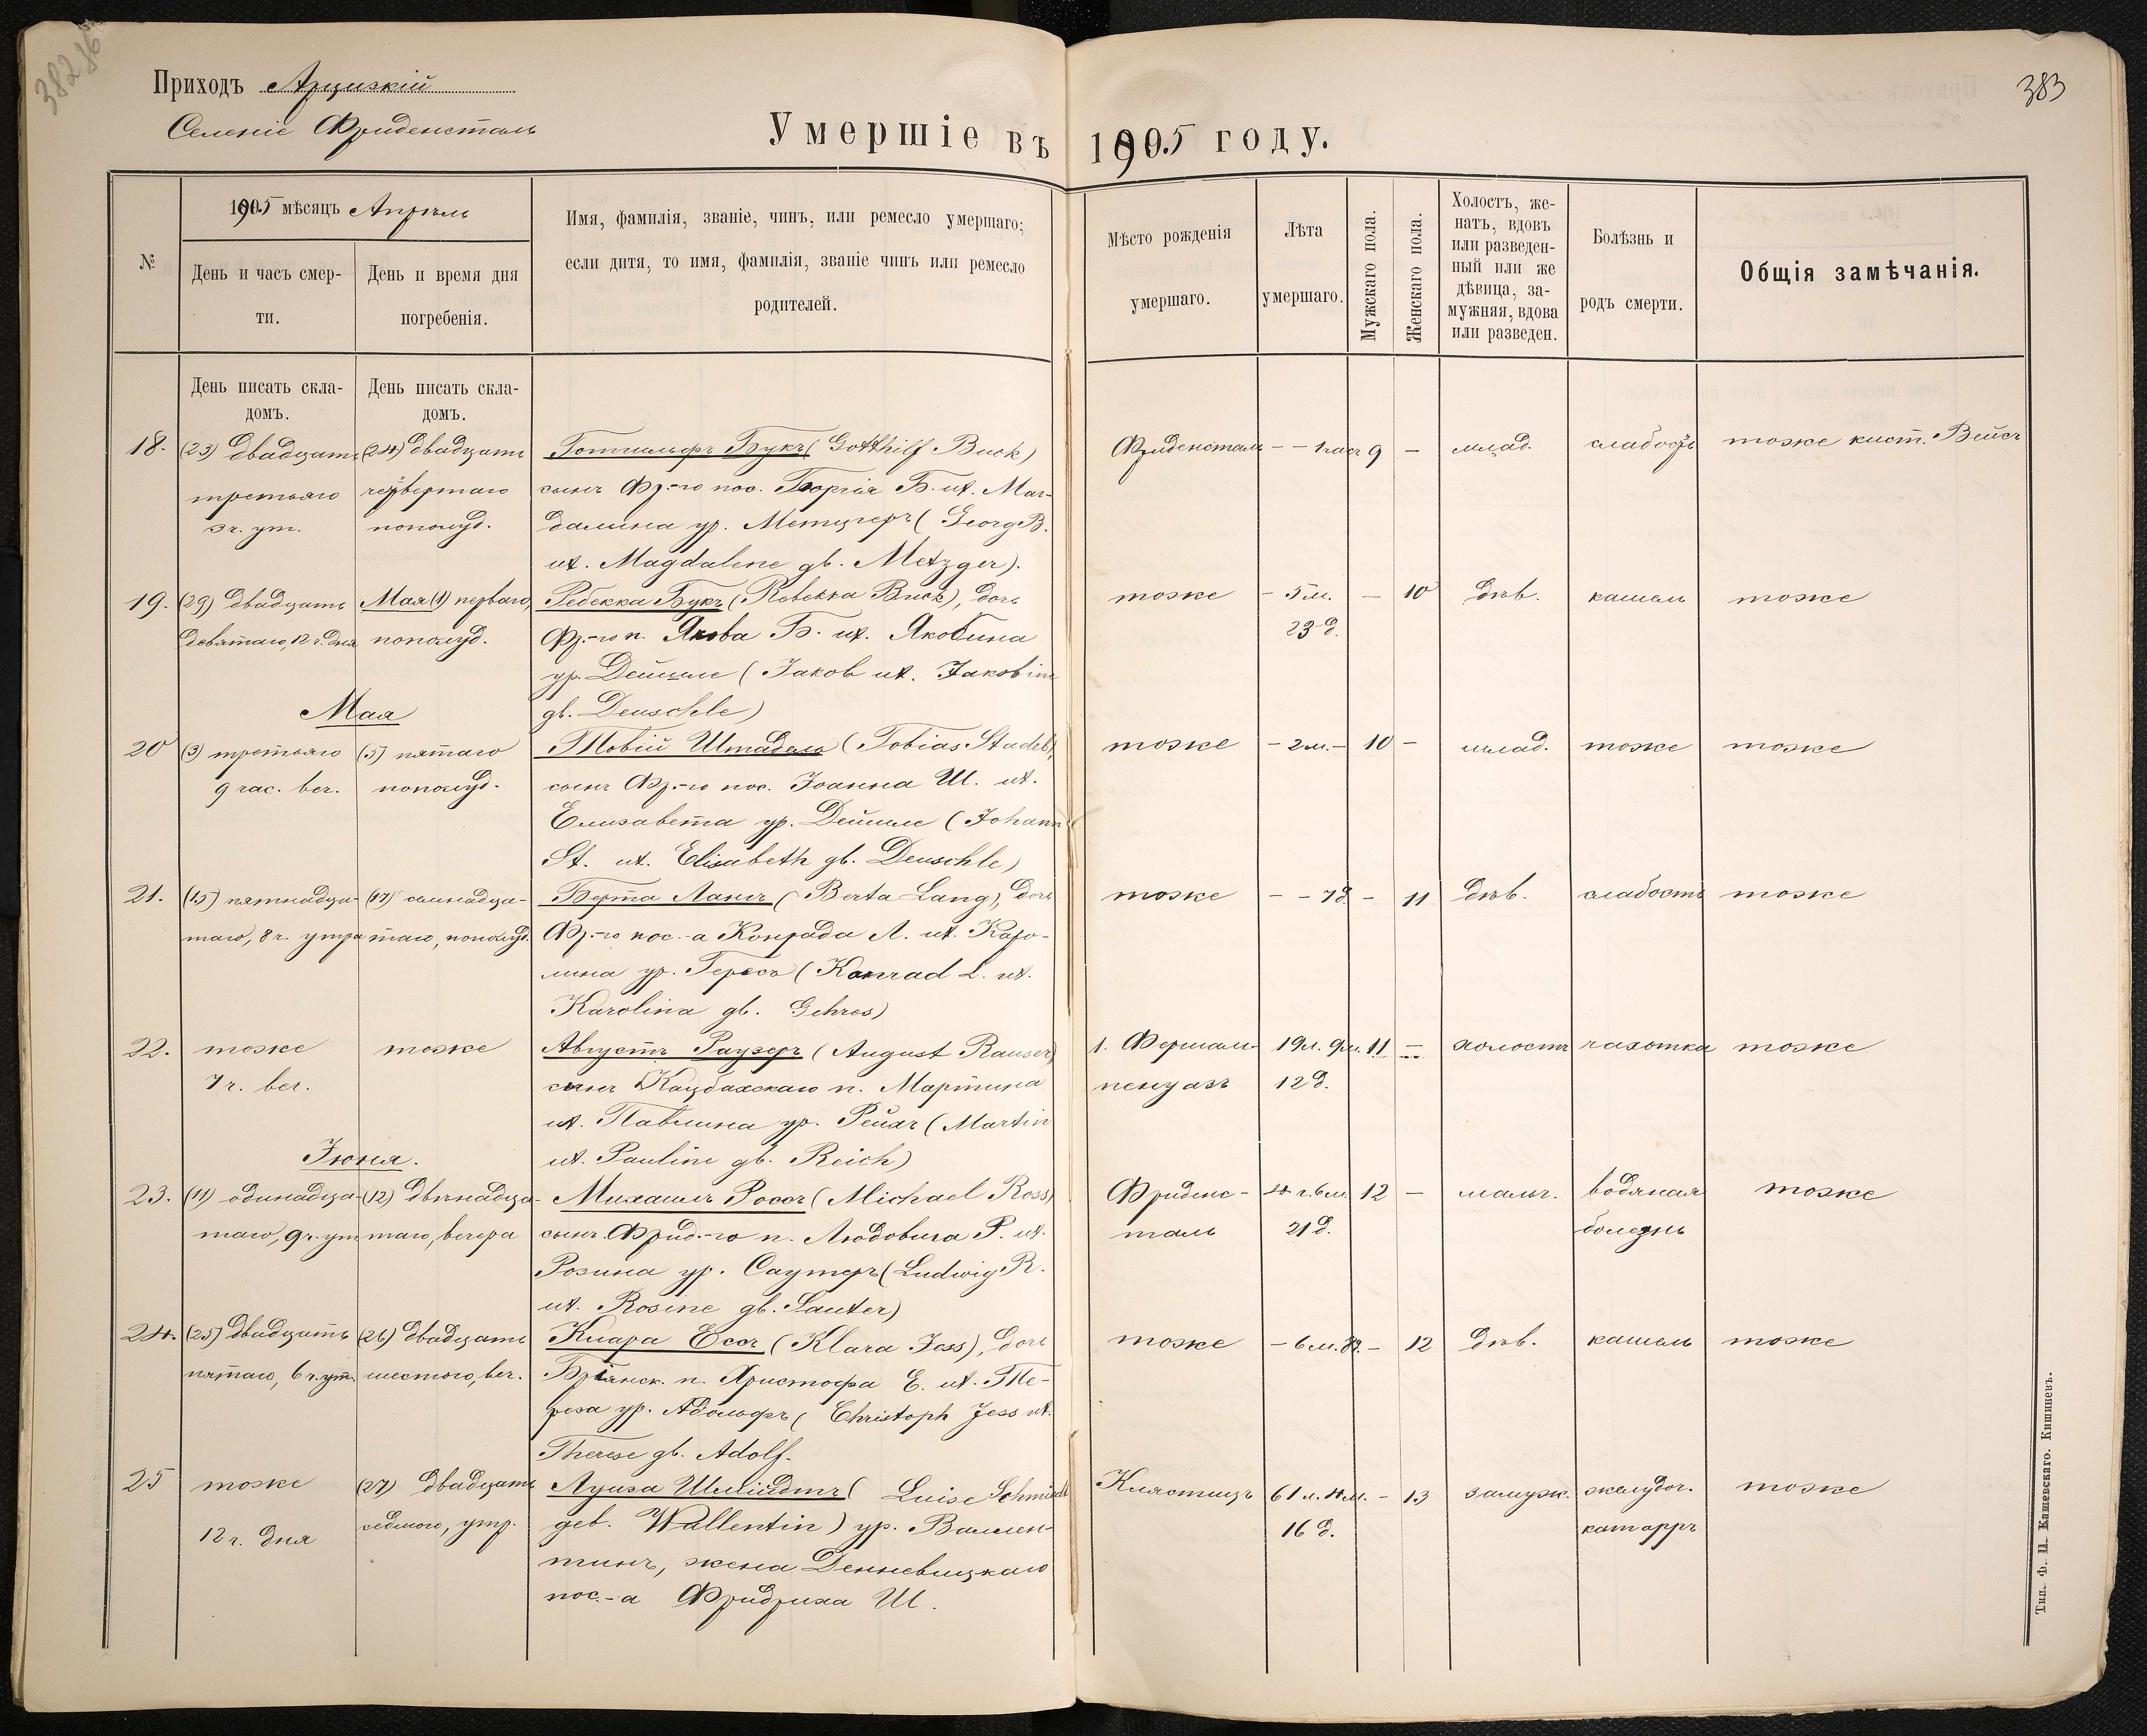 382
383
Приходъ Арцизкій
Селеніе Фриденсталь
Умершіе въ 1905 году.
№
1905 мѣсяцъ Апрѣль
День и часъ смер-
ти.
День и время дня
погребенія.
Имя, фамилія, званіе, чинъ, или ремесло умершаго;
если дитя, то имя, фамилія, званіе чинъ или ремесло
родителей.
Мѣсто рожденія
умершаго.
Лѣта
умершаго.
Мужскаго пола.
Женскаго пола.
Холостъ, же-
натъ, вдовъ
или разведен-
ный или же
дѣвица, за-
мужняя, вдова
или разведен.
Болѣзнь и
родъ смерти.
Общія замѣчанія.
День писать скла-
домъ.
День писать скла-
домъ.
18. (23) двадцать (24) двадцать Готтильфъ Букъ (Gotthilf Buck) Фриденсталь - - 1 час 9 - млад. слабость тоже кист. Вейсъ
третьяго четвертаго сынъ Фр.-го пос. Георгія Б. ит. Маг-
3 ч. ут. пополуд. далина ур. Метцгеръ (Georg B.
ut. Magdalene gb. Metzger).
19. (29) двадцать Мая (1) перваго, Ребекка Букъ (Rebekka Buck), дочь тоже - 5 м. - 10 дѣв. кашель тоже
девятаго, 12 ч. дня пополуд. Фр.-го п. Якова Б. ит. Якобина 23 д.
ур. Дейшле (Jakob ut. Jakobine
Мая gb. Deuschle)
20 (3) третьяго (5) пятаго Товій Штадель (Tobias Stadel), тоже - 2 м. - 10 - млад. тоже тоже
9 час. веч. пополуд. сынъ Фр.-го пос. Іоанна Ш. ит.
Елизавета ур. Дейшле (Johann
St. ut. Elisabeth gb. Deuschle)
21. (15) пятнадца- (17) семнадца- Берта Лангъ (Berta Lang), дочь тоже - - 7 д. - 11 дѣв. слабость тоже
таго, 8 ч. утра таго, пополуд. Фр.-го пос.-а Конрада Л. ит. Каро-
лина ур. Гересъ (Konrad L. ut.
Karolina gb. Gehres)
22. тоже тоже Августъ Раузеръ (August Rauser) 1. Фершам- 19 л. 9 м. 11 - холостъ чахотка тоже
7 ч. веч. сынъ Кацбахскаго п. Мартина пенуазъ 12 д.
ит. Павлина ур. Рейхъ (Martin
Іюня. ut. Pauline gb. Reich)
23. (11) одинадца- (12) двѣнадца- Михаилъ Россъ (Michael Ross) Фриденс- 4 г. 6 м. 12 - мальч. водяная тоже
таго, 9 ч. ут. таго, вечера сынъ Фрид.-го п. Людовига Р. ит. таль 21 д. болезнь
Розина ур. Саутеръ (Ludwig R.
ut. Rosine gb. Sauter)
24. (25) двадцать (26) двадцать Клара Ессъ (Klara Jess), дочь тоже - 6 м. - 12 дѣв. кашель тоже
пятаго, 6 ч. ут. шестого, веч. Бріянск. п. Христофа Е. ит. Те-
реза ур. Адольфъ (Christoph Jess ut.
Therese gb. Adolf.
25 тоже (27) двадцать Луиза Шмидтъ (Luise Schmidt Клястицъ 61 л. 4 м. - 13 замуж. желудоч. тоже
12 ч. дня седмого, утр. geb. Wallentin) ур. Валлен- 16 д. катарръ
тинъ, жена Денневицкаго
пос.-а Фридриха Ш.
Тип. Ф. П. Кашевскаго. Кишиневъ.